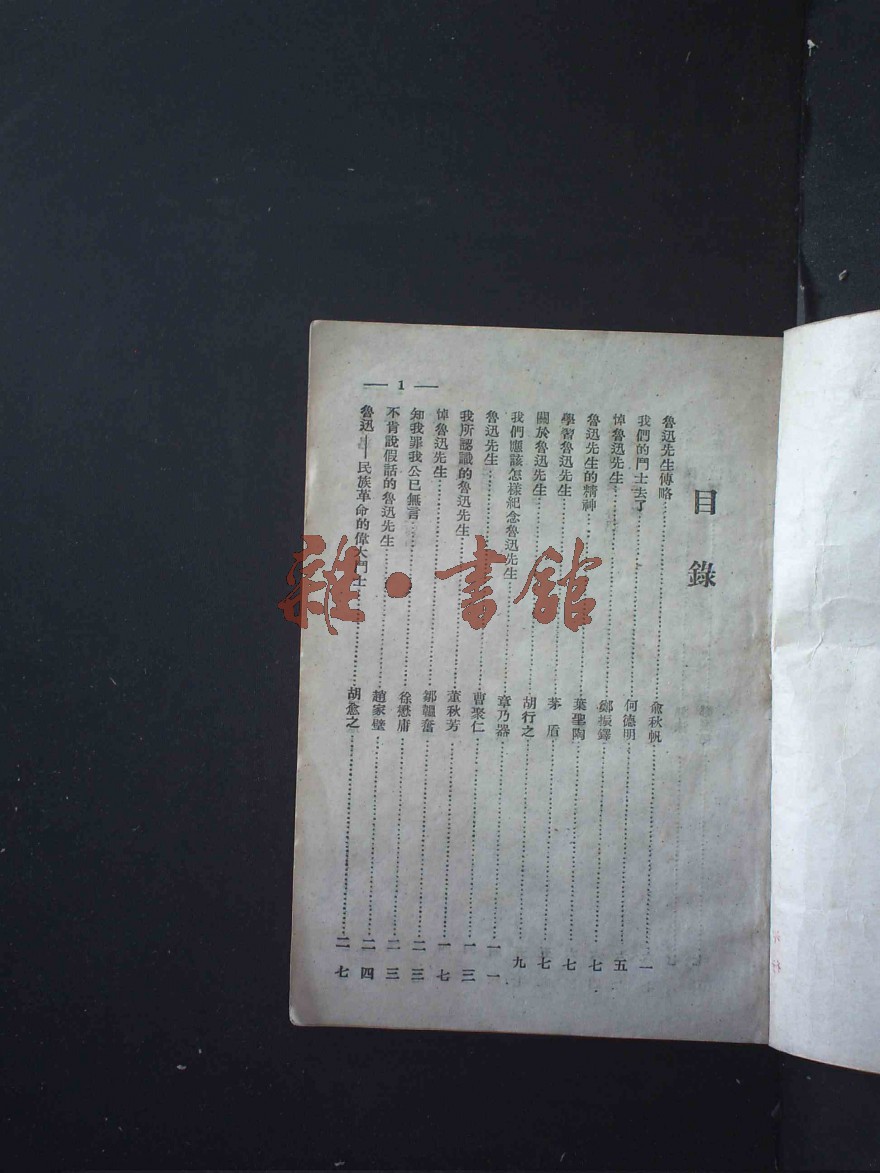 目錄
魯迅先生傳略……俞秋帆……一
我們的鬥士去了……何德明……五
悼魯迅先生……鄭振鐸……七
魯迅先生的精神……葉聖陶……七
學習魯迅先生……茅盾……七
關於魯迅先生……胡行之……九
我們應該怎樣紀念魯迅先生……章乃器……一一
魯迅先生……曹聚仁……一三
我所認識的魯迅先生……董秋芳……一七
悼魯迅先生……鄒韜奮……二三
知我罪我公已無言……徐懋庸……二三
不肯說假話的魯迅先生……趙家璧……二四
魯迅——民族革命的偉大鬥士……胡愈之……二七
— 1 —
雜·書館